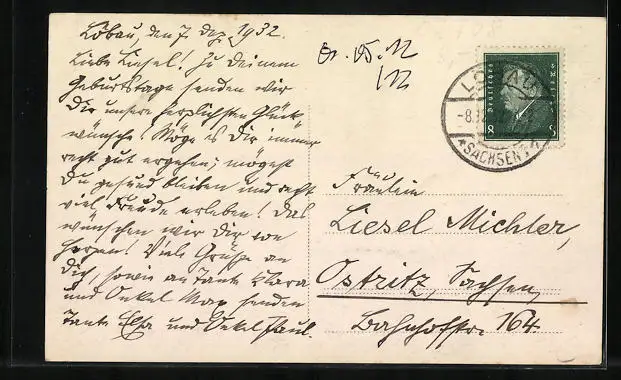 Löbau, den 7. Dez. 1932.
Liebe Liesel! Zu Deinem
Geburtstage senden wir
Dir unsere herzlichsten Glück-
wünsche! Möge es Dir immer
recht gut ergehen, mögest
Du gesund bleiben und recht
viel Freude erleben! Das
wünschen wir Dir von
Herzen! Viele Grüße an
Dich, sowie an Tante Klara
und Onkel Max senden
Tante Elsa und Onkel Paul.
LÖBAU
-8.12.32
*SACHSEN*
8 8
Fräulein
Liesel Michler,
Ostritz, Sachsen,
Bahnhofstr. 164.